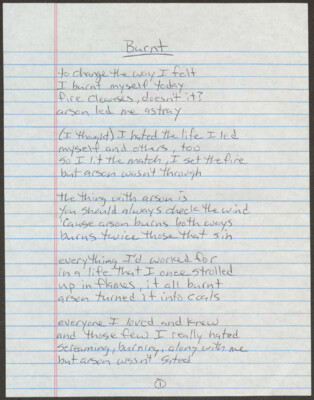 Burnt
to change the way I felt
I burnt myself today
fire cleanses, doesn't it?
arson led me astray
(I thought) I hated the life I led
myself and others, too
so I lit the match, I set the fire
but arson wasn't through
the thing with arson is
you should always check the wind
'cause arson burns both ways
burns twice those that sin
everything I'd worked for
in a life that I once strolled
up in flames, it all burnt
arson turned it into coals
everyone I loved and knew
and those few I really hated
screaming, burning, along with me
but arson wasn't sated
1